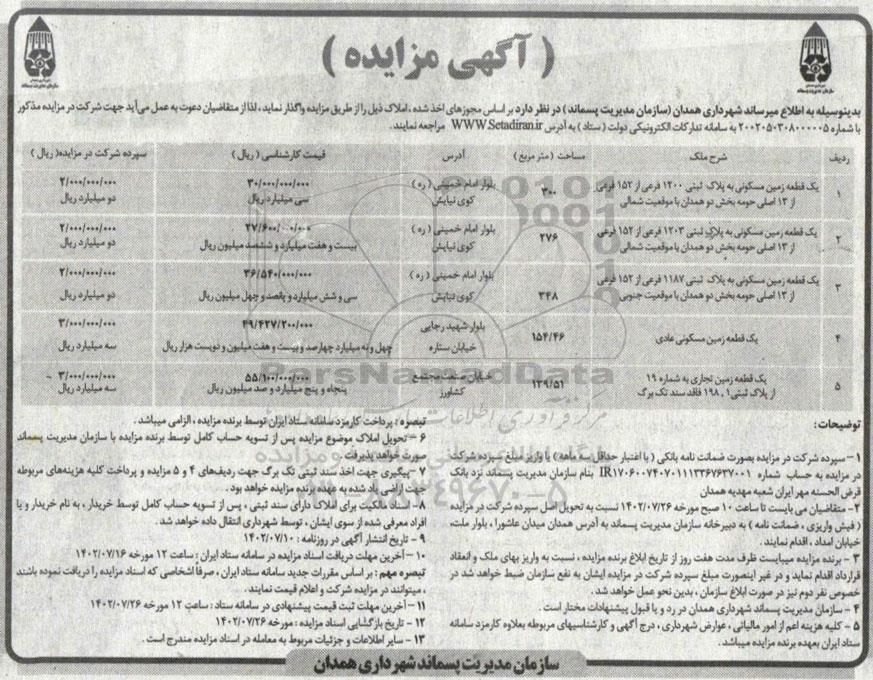 ( آگهی مزایده )
بدینوسیله به اطلاع میرساند شهرداری همدان (سازمان مدیریت پسماند ) در نظر دارد بر اساس مجوزهای اخذ شده ، املاک ذیل را از طریق مزایده واگذار نماید ، لذا از متقاضیان دعوت به عمل می‌آید جهت شرکت در مزایده مذکور
با شماره ۲۰۰۲۰۵۰۳۰۸۰۰۰۰۰۵ به سامانه تدارکات الکترونیکی دولت ( ستاد ) به آدرس WWW.Setadiran.ir مراجعه نمایند.
ردیف شرح ملک مساحت (متر مربع) آدرس قیمت کارشناسی ( ریال ) سپرده شرکت در مزایده( ریال )
۱ یک قطعه زمین مسکونی به پلاک ثبتی ۱۲۰۰ فرعی از ۱۵۲ فرعی ۳۰۰ بلوار امام خمینی ( ره ) ۳۰/۰۰۰/۰۰۰/۰۰۰ ۲/۰۰۰/۰۰۰/۰۰۰
از ۱۳ اصلی حومه بخش دو همدان با موقعیت شمالی کوی نیایش سی میلیارد ریال دو میلیارد ریال
۲ یک قطعه زمین مسکونی به پلاک ثبتی ۱۲۰۳ فرعی از ۱۵۲ فرعی ۲۷۶ بلوار امام خمینی ( ره ) ۲۷/۶۰۰/۰۰۰/۰۰۰ ۲/۰۰۰/۰۰۰/۰۰۰
از ۱۳ اصلی حومه بخش دو همدان با موقعیت شمالی کوی نیایش بیست و هفت میلیارد و ششصد میلیون ریال دو میلیارد ریال
۳ یک قطعه زمین مسکونی به پلاک ثبتی ۱۱۸۷ فرعی از ۱۵۲ فرعی ۳۴۸ بلوار امام خمینی ( ره ) ۳۶/۵۴۰/۰۰۰/۰۰۰ ۲/۰۰۰/۰۰۰/۰۰۰
از ۱۳ اصلی حومه بخش دو همدان با موقعیت جنوبی کوی نیایش سی و شش میلیارد و پانصد و چهل میلیون ریال دو میلیارد ریال
۴ یک قطعه زمین مسکونی عادی ۱۵۴/۴۶ بلوار شهید رجایی ۴۹/۴۲۷/۲۰۰/۰۰۰ ۳/۰۰۰/۰۰۰/۰۰۰
خیابان ستاره چهل و نه میلیارد چهارصد و بیست و هفت میلیون و دویست هزار ریال سه میلیارد ریال
۵ یک قطعه زمین تجاری به شماره ۱۹ ۱۳۹/۵۱ خیابان صنعت مجتمع ۵۵/۱۰۰/۰۰۰/۰۰۰ ۳/۰۰۰/۰۰۰/۰۰۰
از پلاک ثبتی ۱ , ۱۹۸ فاقد سند تک برگ کشاورز پنجاه و پنج میلیارد و صد میلیون ریال سه میلیارد ریال
ParsNamadData
توضیحات:
۱- سپرده شرکت در مزایده بصورت ضمانت نامه بانکی ( با اعتبار حداقل سه ماهه ) یا واریز مبلغ سپرده شرکت
در مزایده به حساب شماره IR۱۷۰۶۰۰۷۴۰۷۰۱۱۱۳۳۶۷۶۳۷۰۰۱ بنام سازمان مدیریت پسماند نزد بانک
قرض الحسنه مهر ایران شعبه مهدیه همدان
۲- متقاضیان می بایست تا ساعت ۱۰ صبح مورخه ۱۴۰۲/۰۷/۲۶ نسبت به تحویل اصل سپرده شرکت در مزایده
( فیش واریزی ، ضمانت نامه ) به دبیرخانه سازمان مدیریت پسماند به آدرس همدان میدان عاشورا ، بلوار ملت،
خیابان امداد ، اقدام نمایند.
۳ - برنده مزایده میبایست ظرف مدت هفت روز از تاریخ ابلاغ برنده مزایده ، نسبت به واریز بهای ملک و انعقاد
قرارداد اقدام نماید و در غیر اینصورت مبلغ سپرده شرکت در مزایده ایشان به نفع سازمان ضبط خواهد شد در
خصوص نفر دوم نیز در صورت ابلاغ سازمان ، بدین نحو عمل خواهد شد.
۴ - سازمان مدیریت پسماند شهرداری همدان در رد و یا قبول پیشنهادات مختار است.
۵ - کلیه هزینه اعم از امور مالیاتی ، عوارض شهرداری ، درج آگهی و کارشناسیهای مربوطه بعلاوه کارمزد سامانه
ستاد ایران بعهده برنده مزایده میباشد.
تبصره : پرداخت کارمزد سامانه ستاد ایران توسط برنده مزایده ، الزامی میباشد.
۶ - تحویل املاک موضوع مزایده پس از تسویه حساب کامل توسط برنده مزایده با سازمان مدیریت پسماند
صورت خواهد پذیرفت.
۷- پیگیری جهت اخذ سند ثبتی تک برگ جهت ردیف‌های ۴ و ۵ مزایده و پرداخت کلیه هزینه‌های مربوطه
جهت اراضی یاد شده به عهده برنده مزایده خواهد بود.
۸- اسناد مالکیت برای املاک دارای سند ثبتی ، پس از تسویه حساب کامل توسط خریدار ، به نام خریدار و یا
افراد معرفی شده از سوی ایشان ، توسط شهرداری انتقال داده خواهد شد.
۹ - تاریخ انتشار آگهی در روزنامه : ۱۴۰۲/۰۷/۱۰
۱۰ - آخرین مهلت دریافت اسناد مزایده در سامانه ستاد ایران : ساعت ۱۲ مورخه ۱۴۰۲/۰۷/۱۶
تبصره مهم : بر اساس مقررات جدید سامانه ستاد ایران ، صرفاً اشخاصی که اسناد مزایده را دریافت نموده باشند
، میتوانند در مزایده شرکت و اعلام قیمت نمایند.
۱۱ - آخرین مهلت ثبت قیمت پیشنهادی در سامانه ستاد : ساعت ۱۲ مورخه ۱۴۰۲/۰۷/۲۶
۱۲ - تاریخ بازگشایی اسناد مزایده : مورخه ۱۴۰۲/۰۷/۲۶
۱۳ - سایر اطلاعات و جزئیات مربوط به معامله در اسناد مزایده مندرج است.
سازمان مدیریت پسماند شهرداری همدان